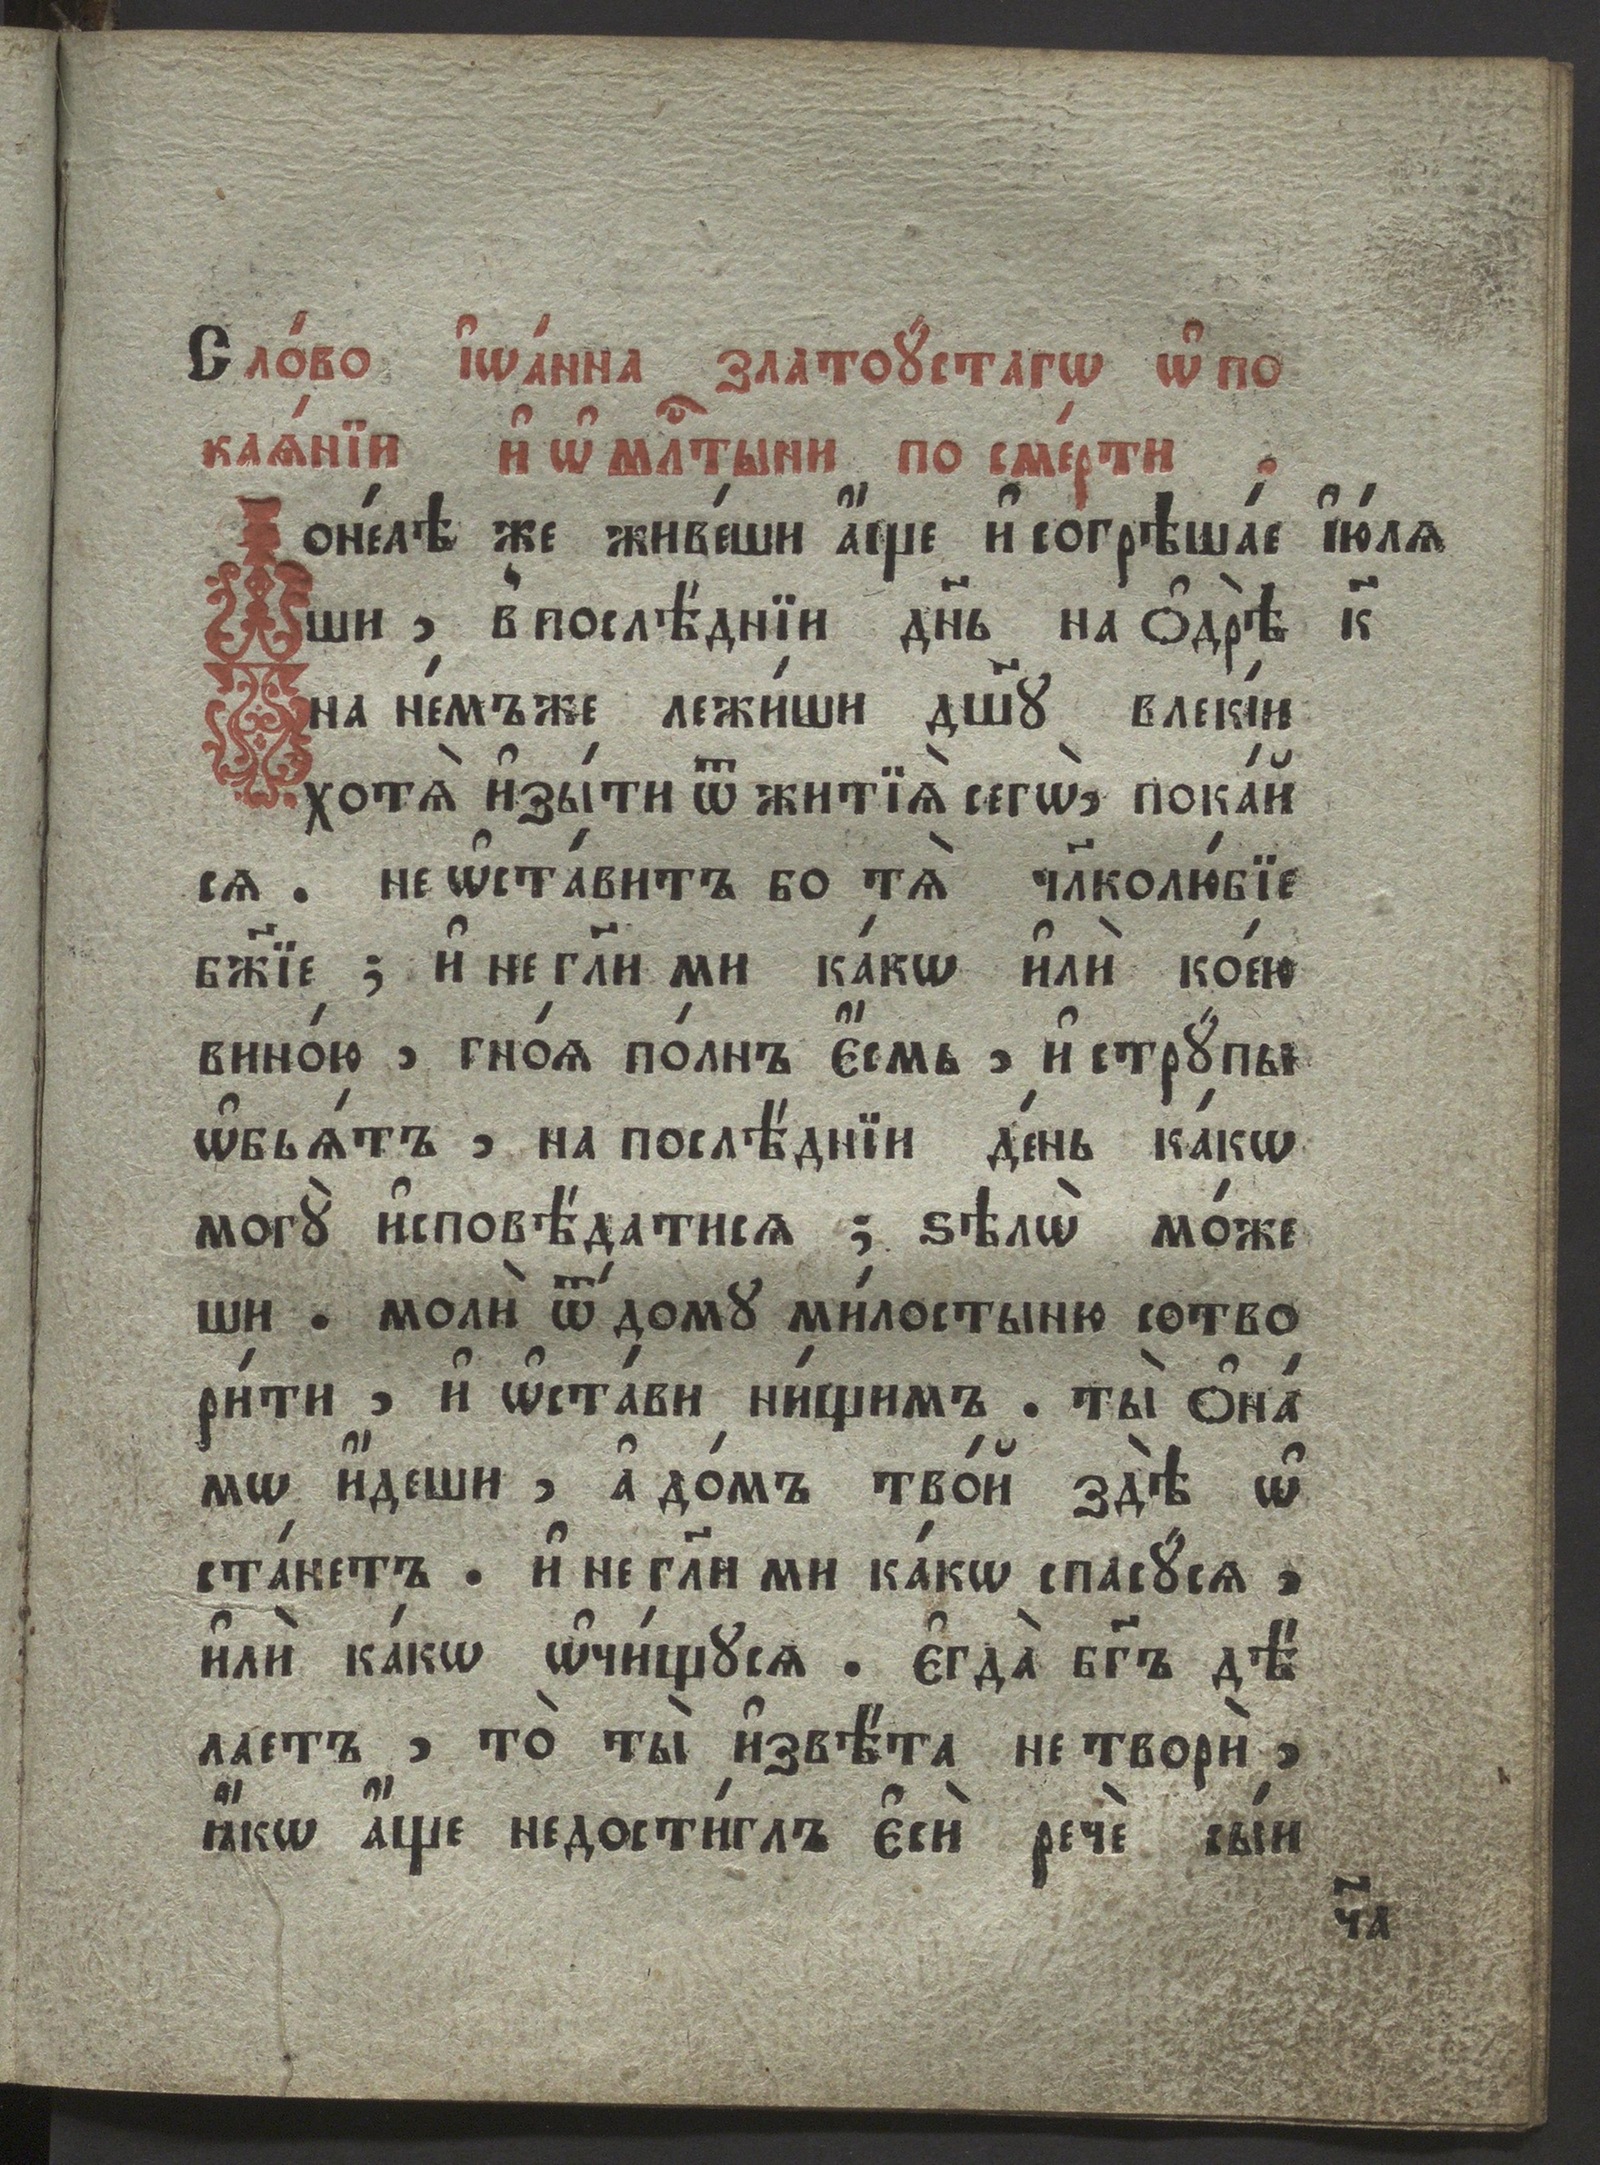 Сло́во і҆ѡа́нна златоꙋ́стагѡ ѡ҆ по
каѧ́нїи и҆ ѡ҆ млⷭ҇тыни по сме́рти .
Доне́лѣ же живе́ши а҆́ще и҆ согрѣша́е і҆ю́лѧ
ши , в҆ послѣ́днїи дн҃ь на ѻ҆дрѣ̀ к҃
на не́мъже лежи́ши дш҃ꙋ влекі́и
хотѧ̀ и҆зы́ти ѿ житїѧ̀ сегѡ̀, пока́й
сѧ . не ѡ҆ста́витъ бо тѧ̀ чл҃колю́бїе
бж҃їе ; и҆ не гл҃и ми ка́кѡ и҆лѝ ко́ею
вино́ю , гно́ѧ по́лнъ є҆́смь , и҆ стрꙋ́пы
ѡ҆бьѧ́тъ , на послѣ́днїи де́нь ка́кѡ
могꙋ̀ и҆сповѣ́датисѧ ; ѕѣлѡ̀ мо́же
ши . молѝ ѿ до́мꙋ ми́лостыню сѻтво
ри́ти , и҆ ѡ҆ста́ви ни́щимъ . ты̀ ѻ҆на́
мѡ и҆́деши , а҆ до́мъ тво́й здѣ̀ ѡ҆
ста́нетъ . и҆ не гл҃и ми ка́кѡ спасꙋ́сѧ ,
и҆лѝ ка́кѡ ѡ҆чи́щꙋсѧ . є҆гда̀ бг҃ъ дѣ́
лаетъ , то̀ ты̀ и҆звѣ́та не творѝ ,
ꙗ҆́кѡ а҆́ще недости́глъ є҆сѝ речѐ сы́и
ч҃а